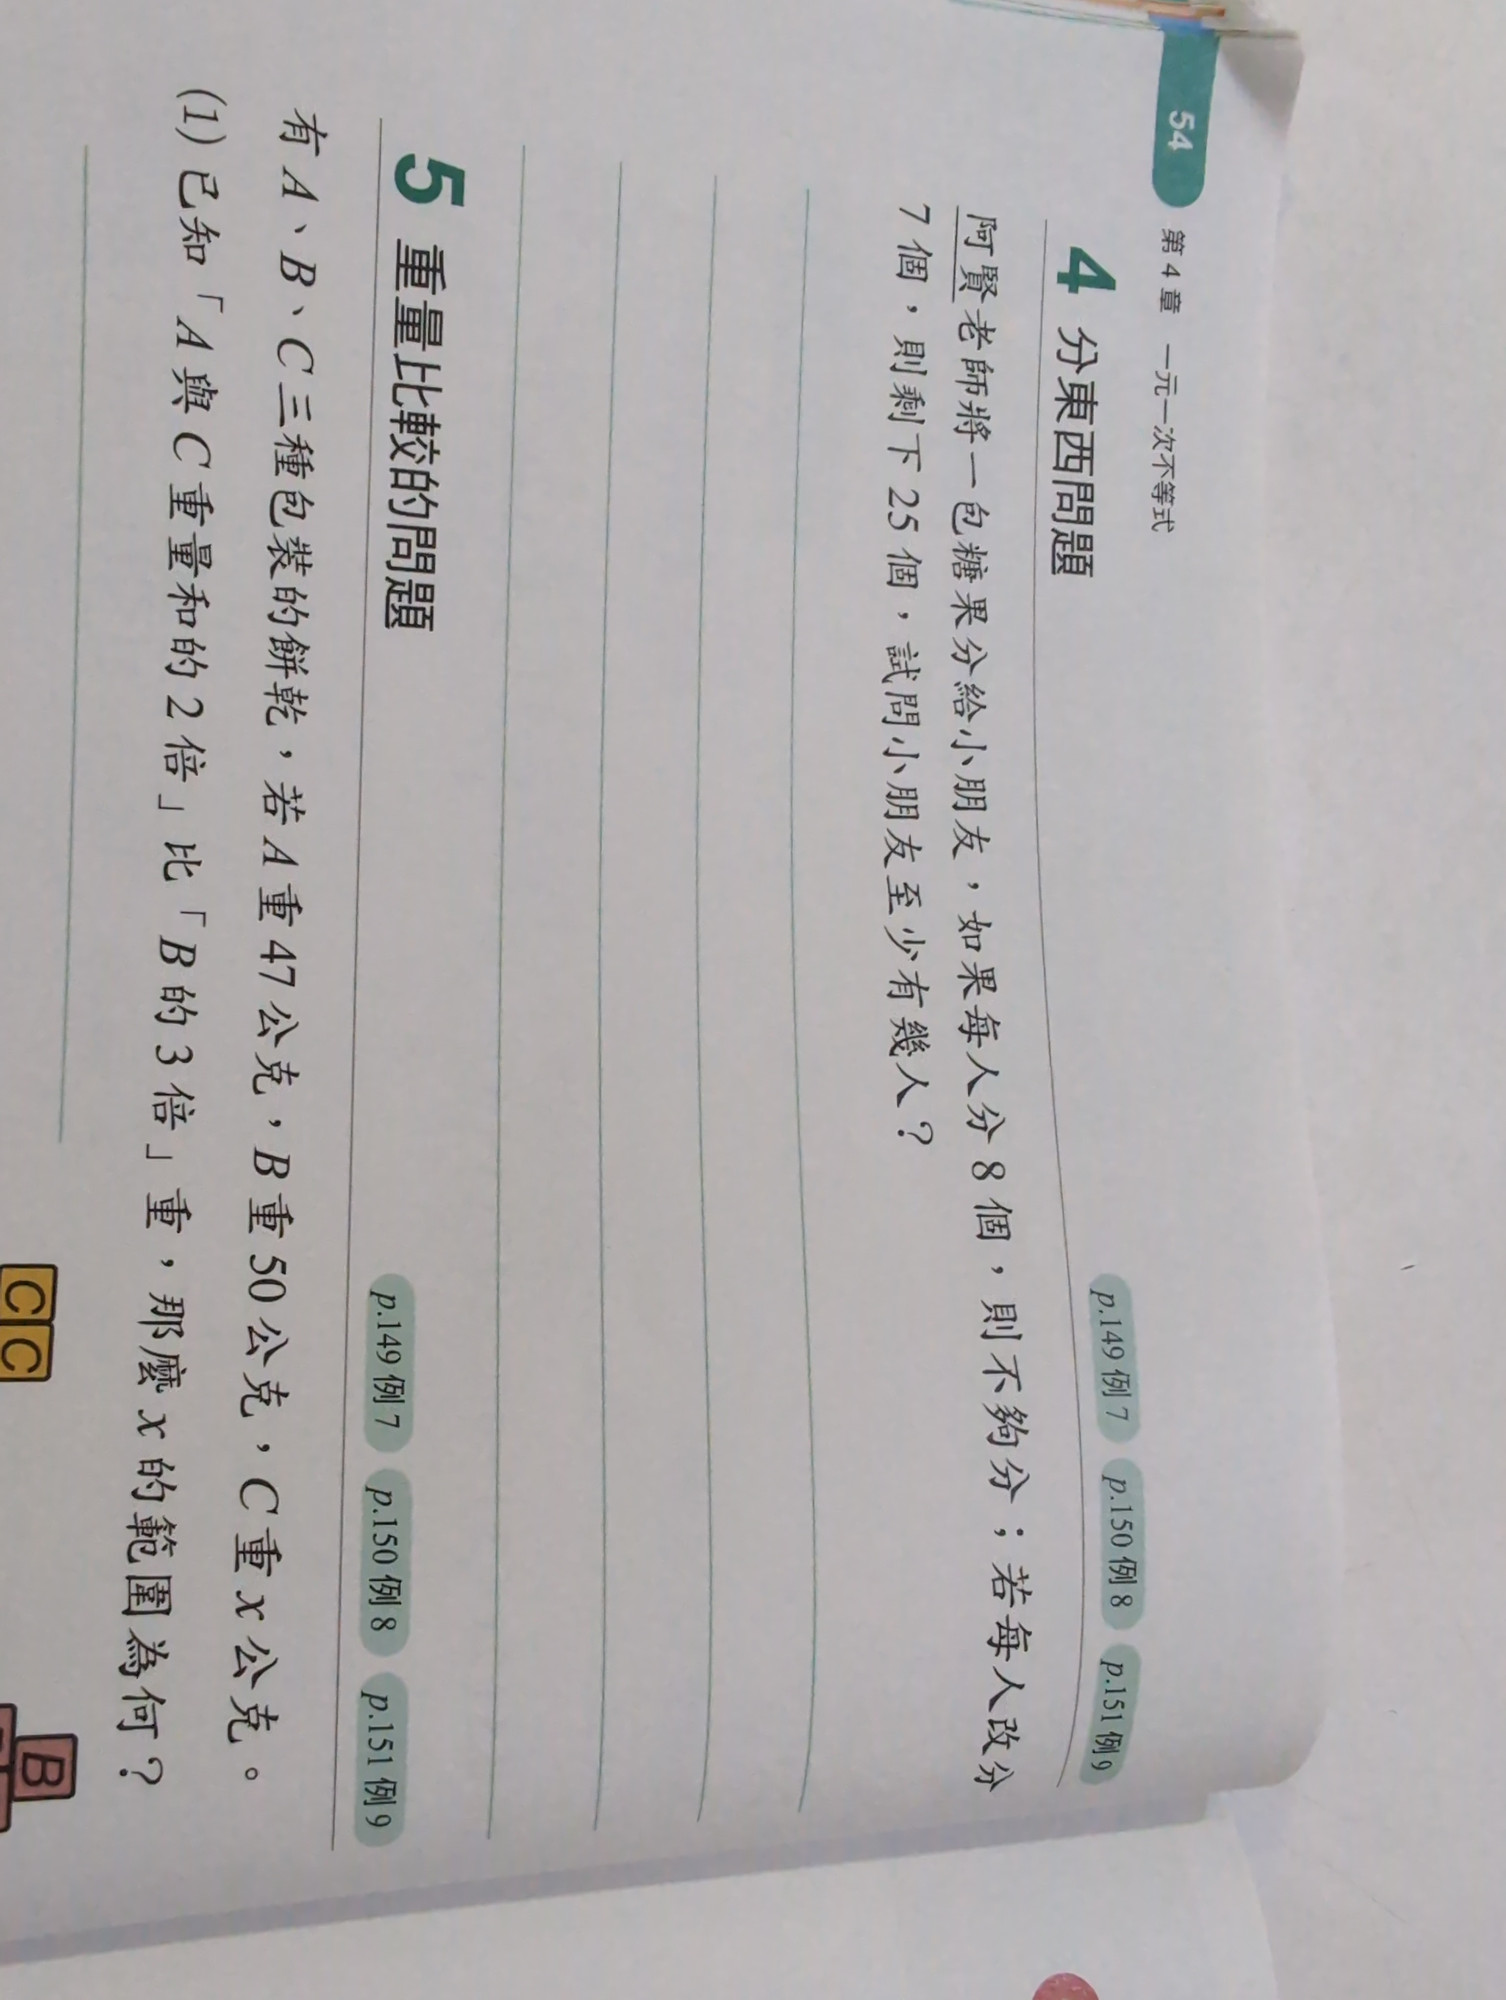 54 第4章 一元一次不等式
4 分東西問題 p.149 例7 p.150 例8 p.151 例9
阿賢老師將一包糖果分給小朋友，如果每人分8個，則不夠分；若每人改分
7個，則剩下25個，試問小朋友至少有幾人？
5 重量比較的問題 p.149 例7 p.150 例8 p.151 例9
有A、B、C三種包裝的餅乾，若A重47公克，B重50公克，C重x公克。
(1) 已知「A與C重量和的2倍」比「B的3倍」重，那麼x的範圍為何？
C C B